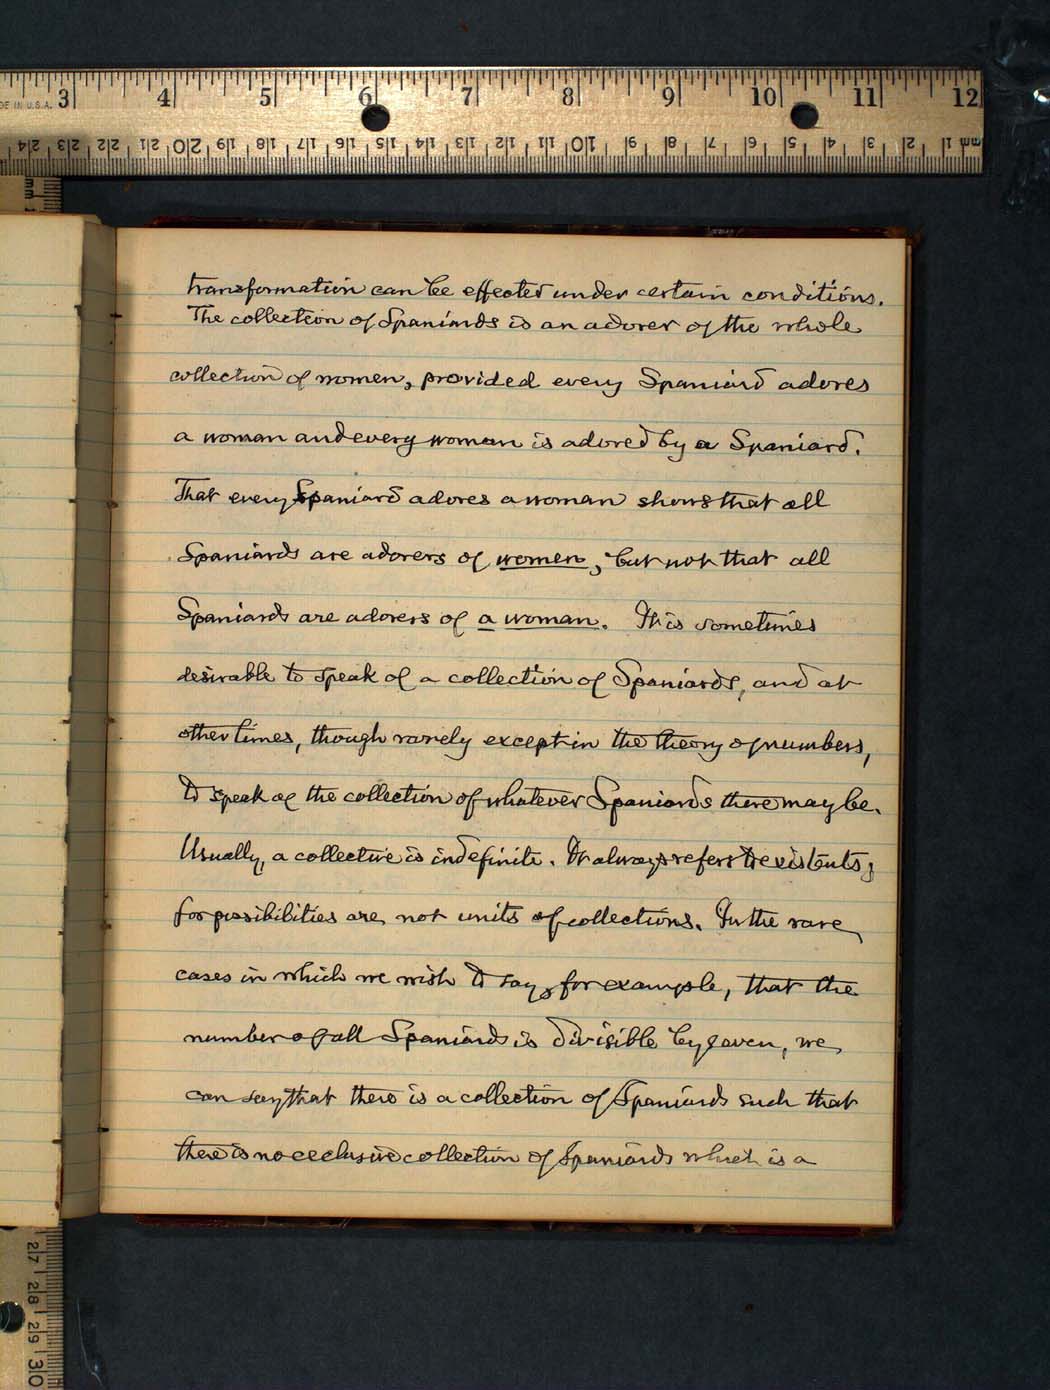 MADE IN U.S.A. 3 4 5 6 7 8 9 10 11 12
24 23 22 21 20 19 18 17 16 15 14 13 12 11 10 9 8 7 6 5 4 3 2 1 mm
mm
transformation can be effected under certain conditions.
The collection of Spaniards is an adorer of the whole
collection of women, provided every Spaniard adores
a woman and every woman is adored by a Spaniard.
That every Spaniard adores a woman shows that all
Spaniards are adorers of women, but not that all
Spaniards are adorers of a woman. It is sometimes
desirable to speak of a collection of Spaniards, and at
other times, though rarely except in the theory of numbers,
to speak of the collection of whatever Spaniards there may be.
Usually, a collective is indefinite. It always refers to existents;
for possibilities are not units of collections. In the rare
cases in which we wish to say, for example, that the
number of all Spaniards is divisible by seven, we
can say that there is a collection of Spaniards such that
there is no exclusive collection of Spaniards which is a
27 28 29 30